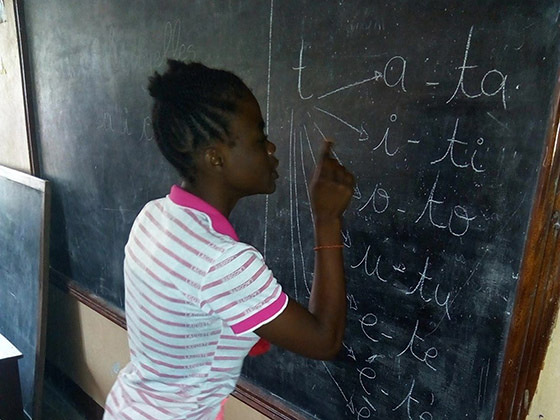 t
a - ta
i - ti
o - to
u - tu
e - te
é - t
è